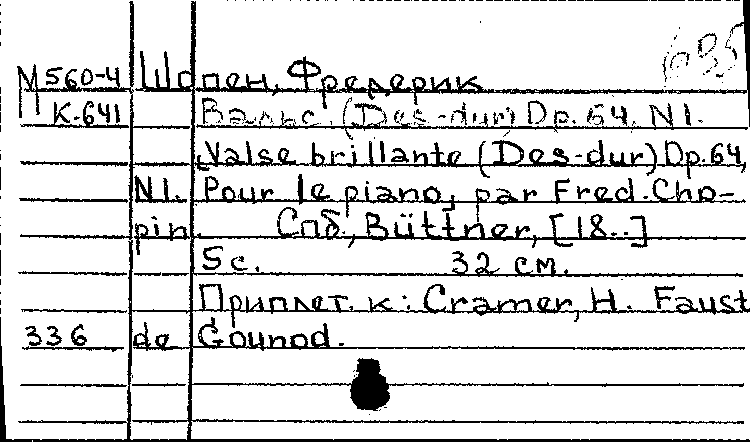 695
М560-4 Шопен, Фредерик
П К-641 Вальс. (Des-dur) Op. 64. N1.
Valse brillante (Des-dur) Op. 64,
N1. Pour le piano, par Fred. Cho-
pin. Спб, Büttner, [18..]
5 с. 32 см.
Приплет. к: Cramer, H. Faust
336 de Gounod.